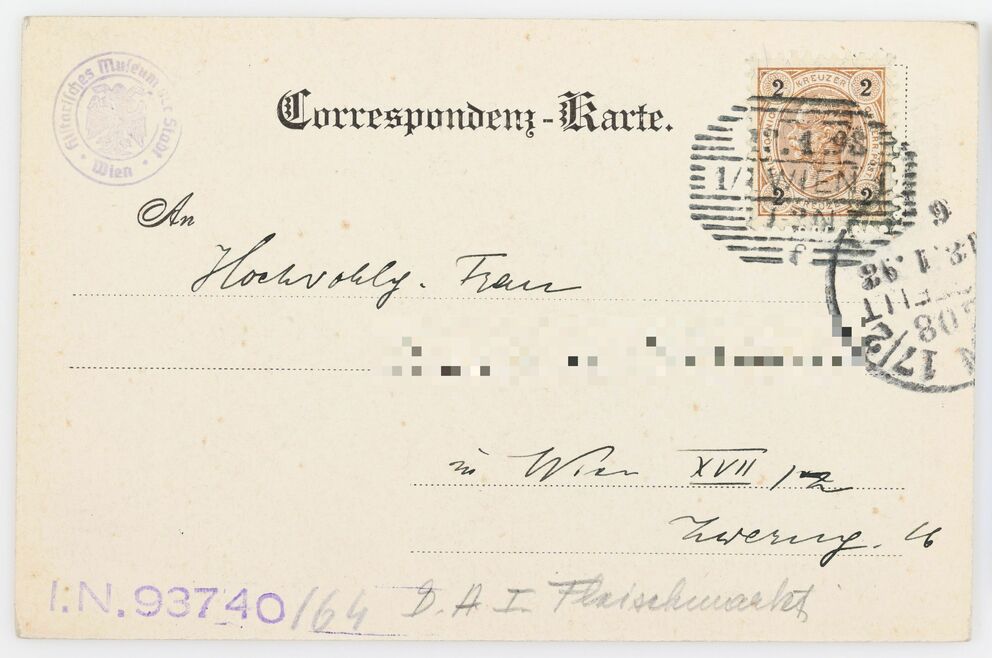 Historisches Museum der Stadt Wien
Correspondenz-Karte.
2 KREUZER 2
1.98
1/1 WIEN
2 KREUZER 2
f
An
Hochwohlg. Frau
in Wien XVII/2
Zwerng. 16
9
1.98
17/2
I.N. 93740/64 D. A I. Fleischmarkt